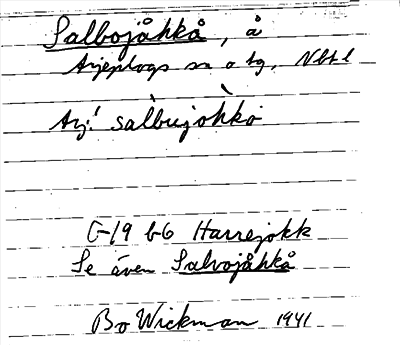 Salbojåhkå, å
Arjeplogs sn o tg, Nbtl
Arj! sàlbujòhkò
G-19 b-6 Harrejokk
Se även Salvojåhkå
Bo Wickman 1941